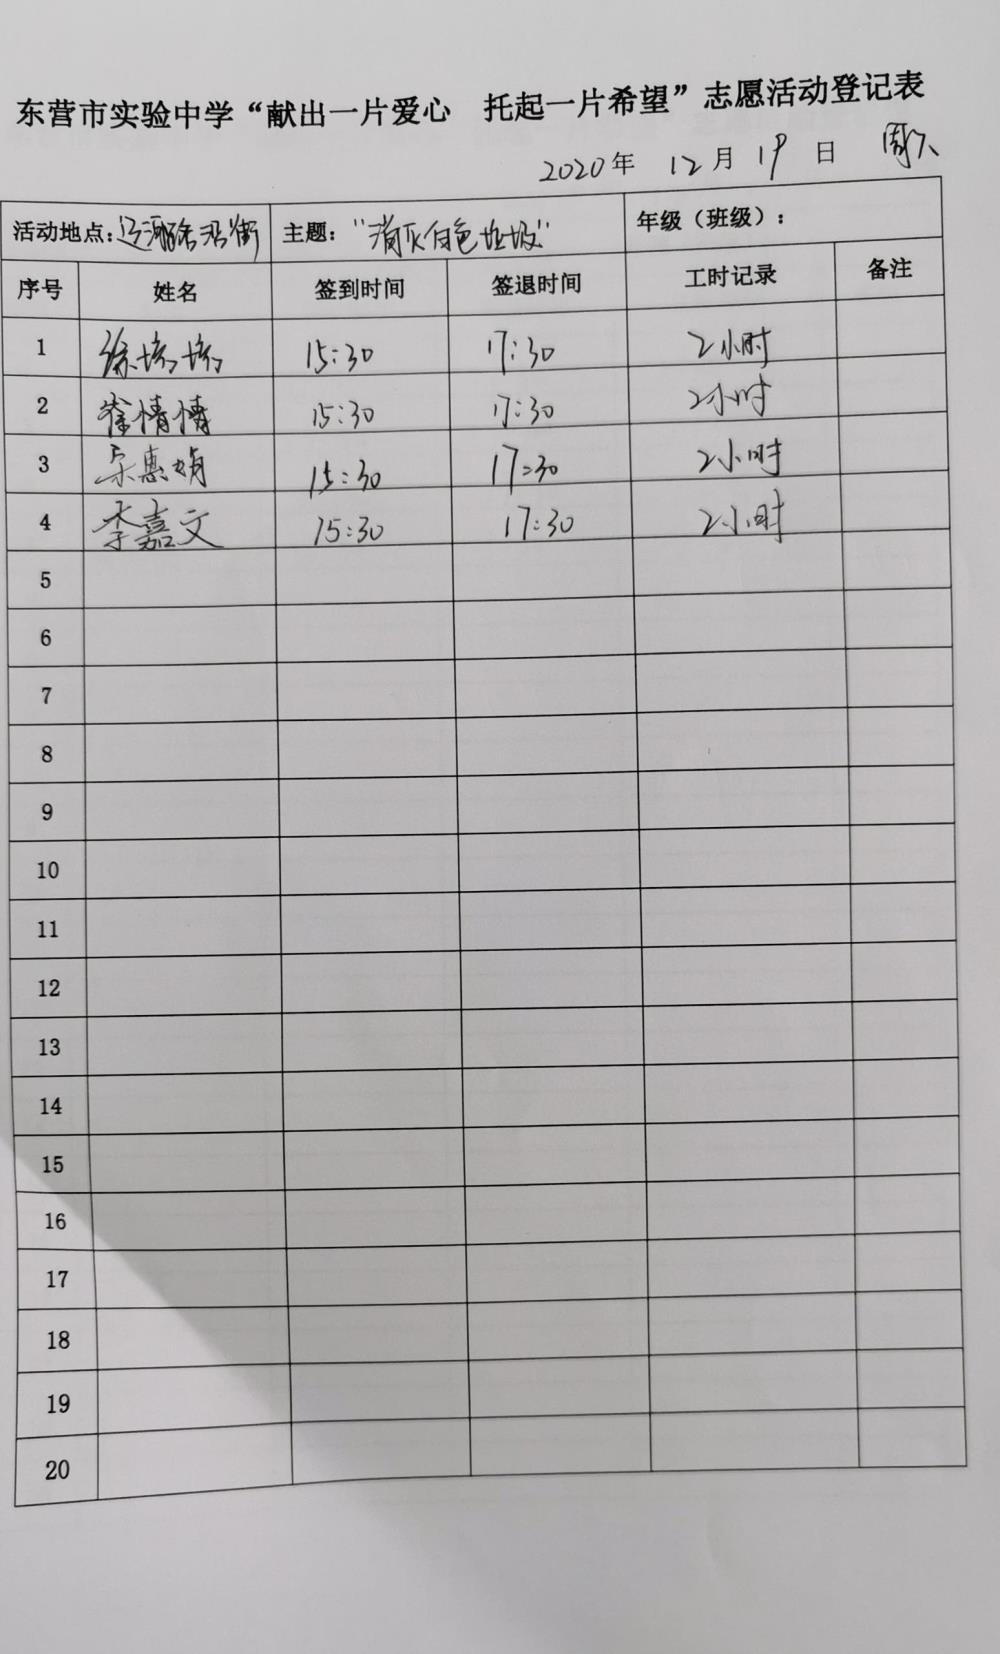 东营市实验中学“献出一片爱心 托起一片希望”志愿活动登记表
2020年 12月 19日 周六
活动地点: 辽河路沿街 主题: “消灭白色垃圾” 年级（班级）:
序号 姓名 签到时间 签退时间 工时记录 备注
1 徐培培 15:30 17:30 2小时
2 徐倩倩 15:30 17:30 2小时
3 惠娟 15:30 17:30 2小时
4 李嘉文 15:30 17:30 2小时
5
6
7
8
9
10
11
12
13
14
15
16
17
18
19
20